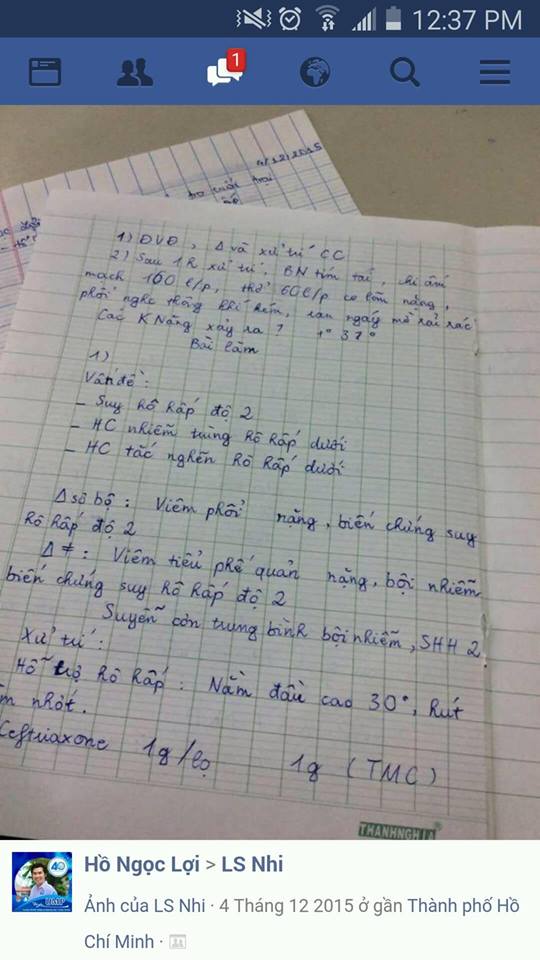 12:37 PM
1
4/12/2015
1) ĐVĐ, Δ và xử trí CC
2) Sau 1h xử trí, BN tím tái, chi ấm
mạch 160 l/p, thở 60 l/p co lõm nặng,
phổi nghe thông khí kém, ran ngáy mờ rải rác
Các K Năng xảy ra? t° 37°
Bài làm
1)
Vấn đề:
- Suy hô hấp độ 2
- HC nhiễm trùng hô hấp dưới
- HC tắc nghẽn hô hấp dưới
Δ sơ bộ: Viêm phổi nặng, biến chứng suy
hô hấp độ 2
Δ ≠: Viêm tiểu phế quản nặng, bội nhiễm
biến chứng suy hô hấp độ 2
Suyễn cơn trung bình bội nhiễm, SHH 2
Xử trí:
Hỗ trợ hô hấp: Nằm đầu cao 30°, hút
nhớt.
Ceftriaxone 1g/lọ 1g (TMC)
THANHNGHIA
Hồ Ngọc Lợi > LS Nhi
Ảnh của LS Nhi · 4 Tháng 12 2015 ở gần Thành phố Hồ
Chí Minh ·
40
UMP